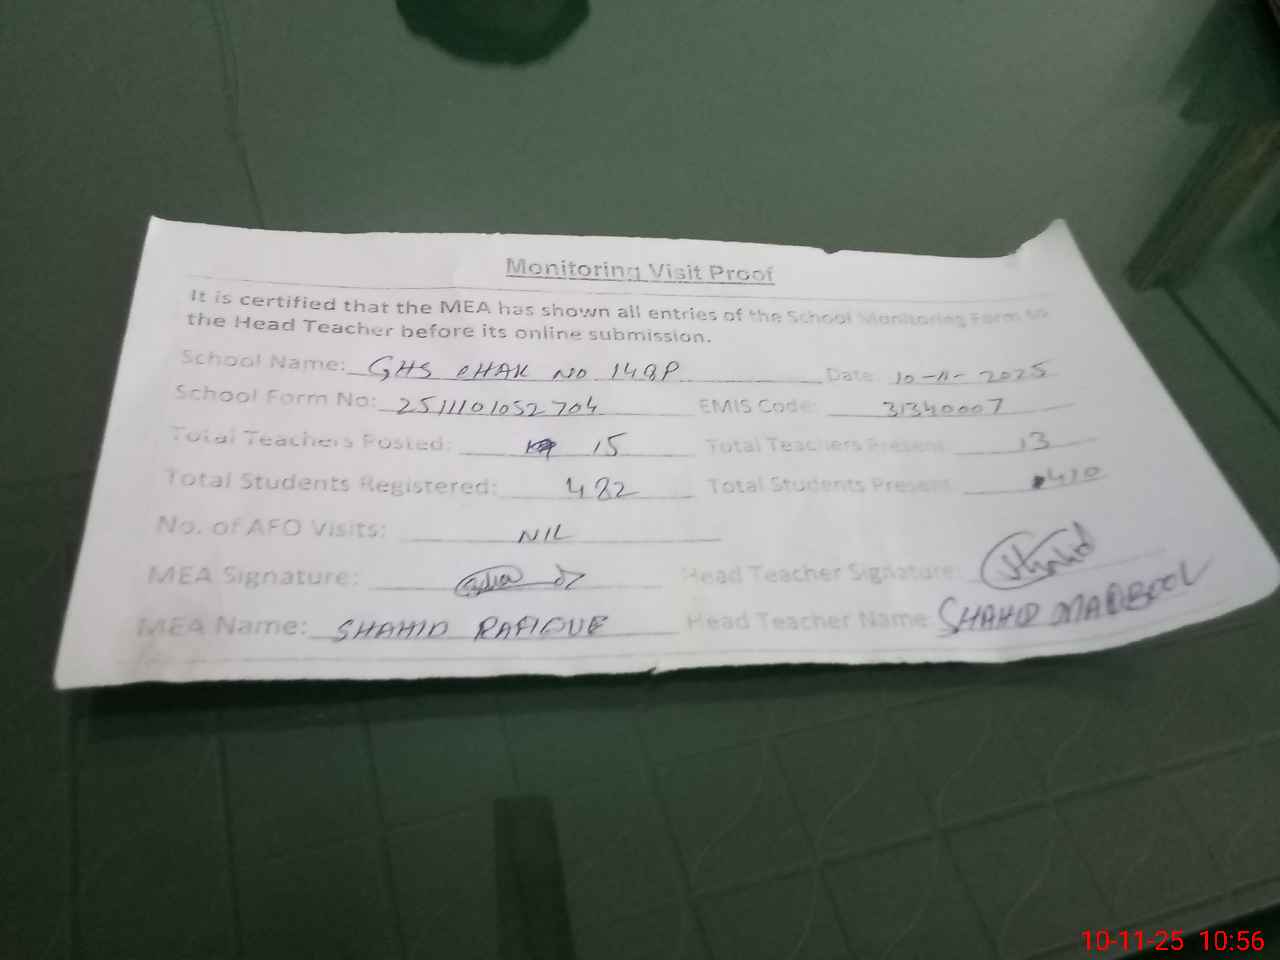 Monitoring Visit Proof
It is certified that the MEA has shown all entries of the School Monitoring Form to
the Head Teacher before its online submission.
School Name: GHS CHAK NO 148P Date: 10-11-2025
School Form No: 2511101052704 EMIS Code: 31340007
Total Teachers Posted: 15 Total Teachers Present: 13
Total Students Registered: 482 Total Students Present: 410
No. of AFO Visits: NIL
MEA Signature: Head Teacher Signature: Shahid
MEA Name: SHAHID RAFIQUE Head Teacher Name: SHAHID MAQBOOL
10-11-25 10:56